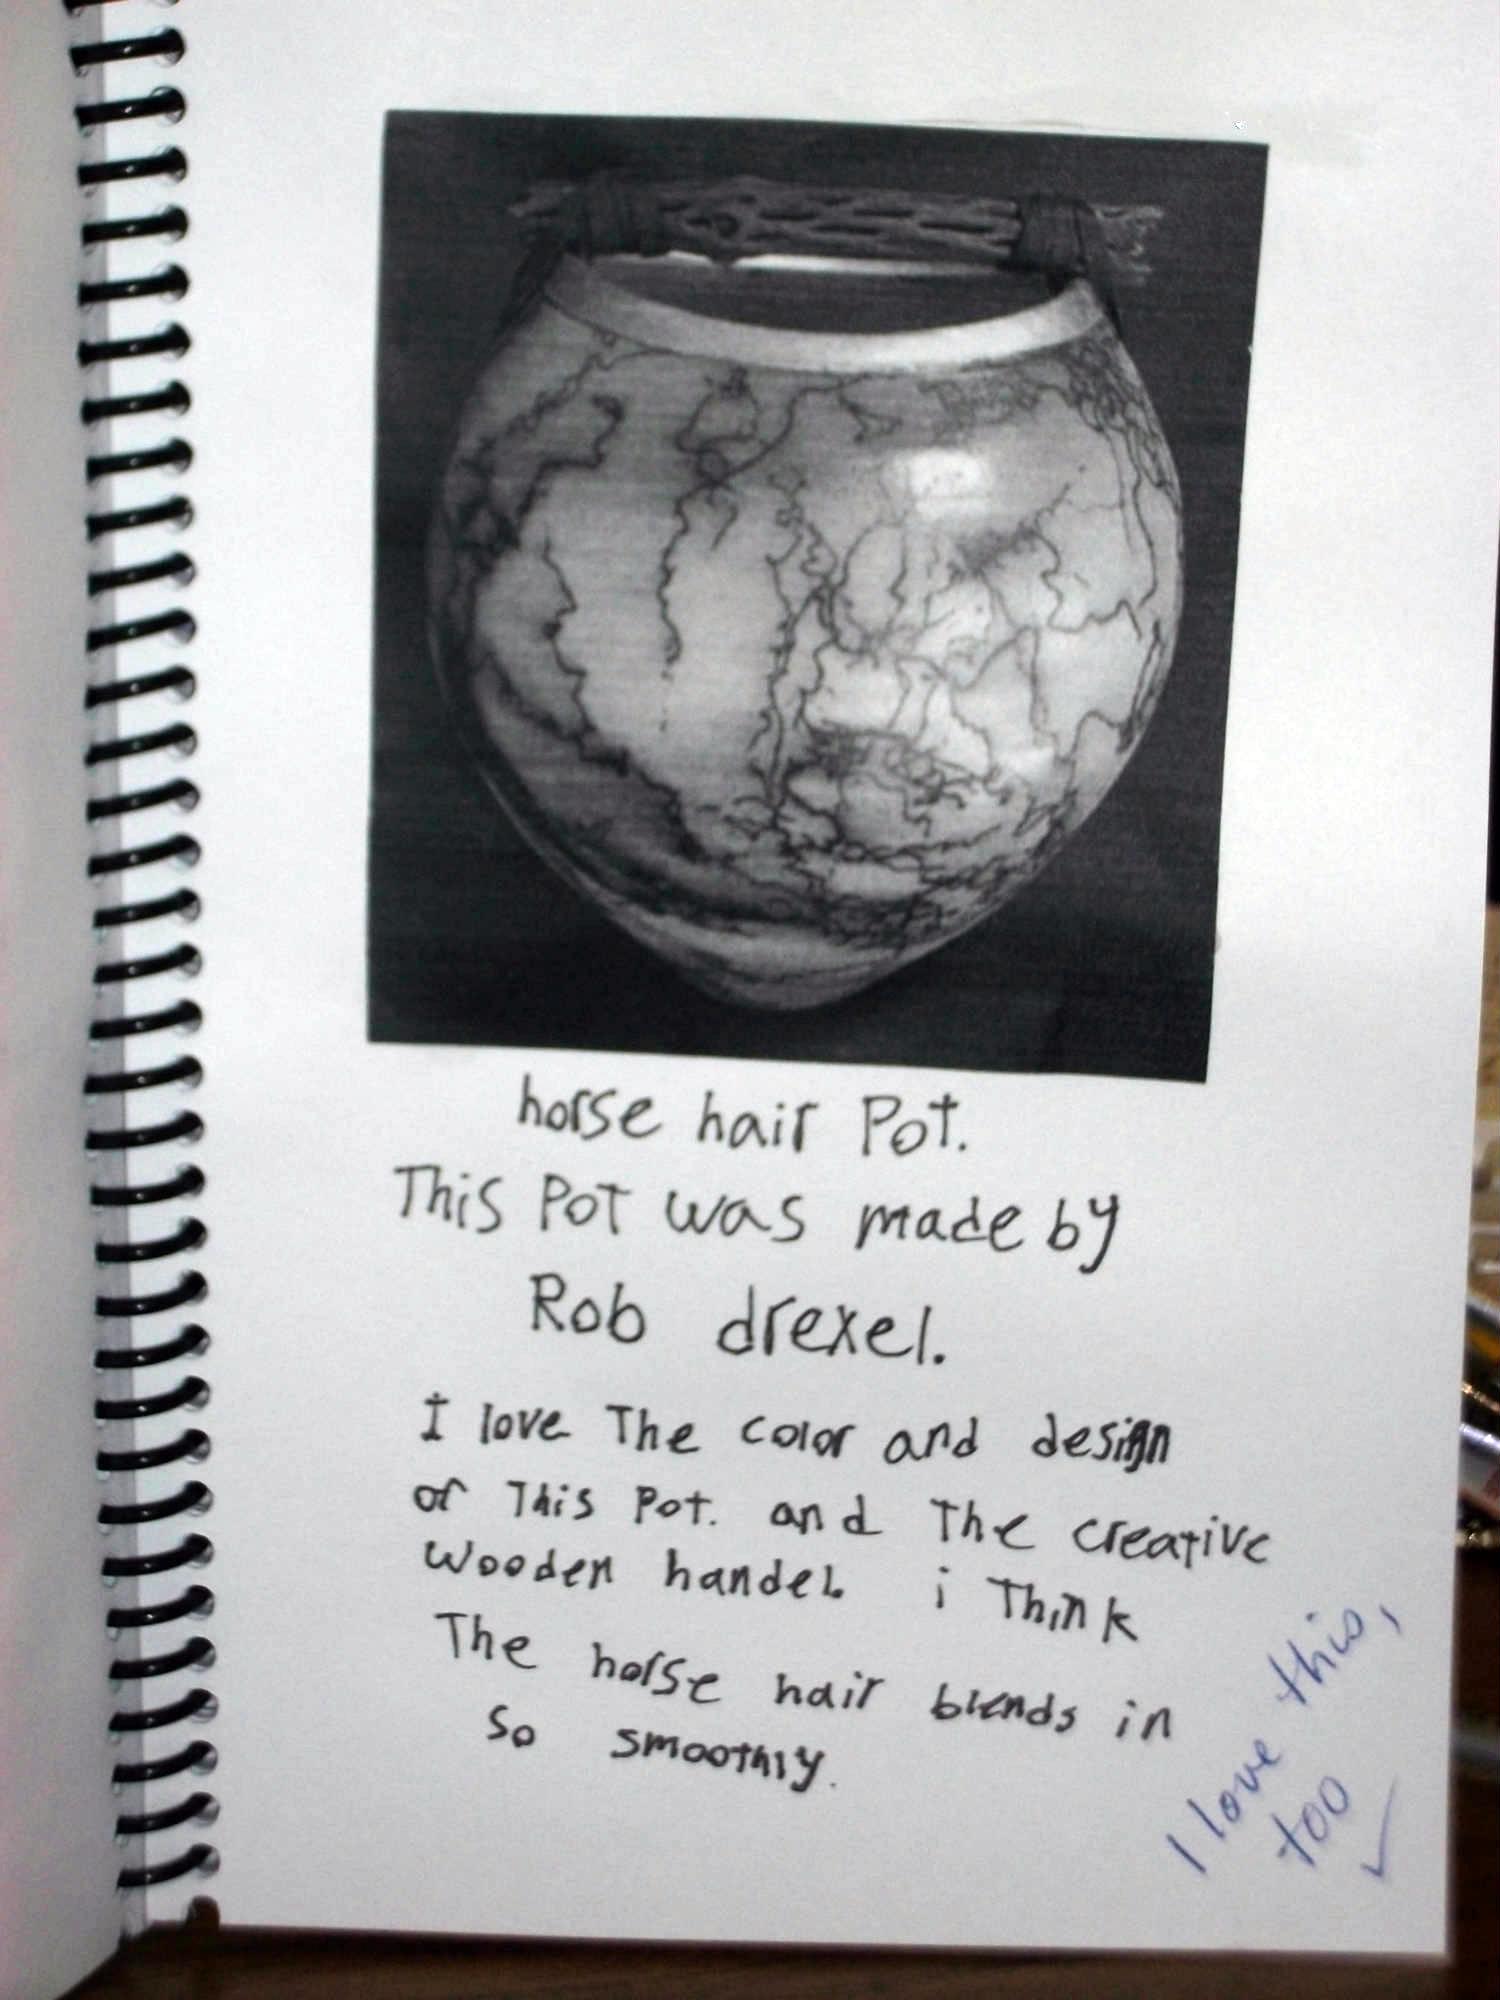 horse hair Pot.
This Pot was made by
Rob drexel.
I love The color and design
of This Pot. and The creative
wooden handel. i Think
The horse hair blends in
so smoothly.
I love this,
too